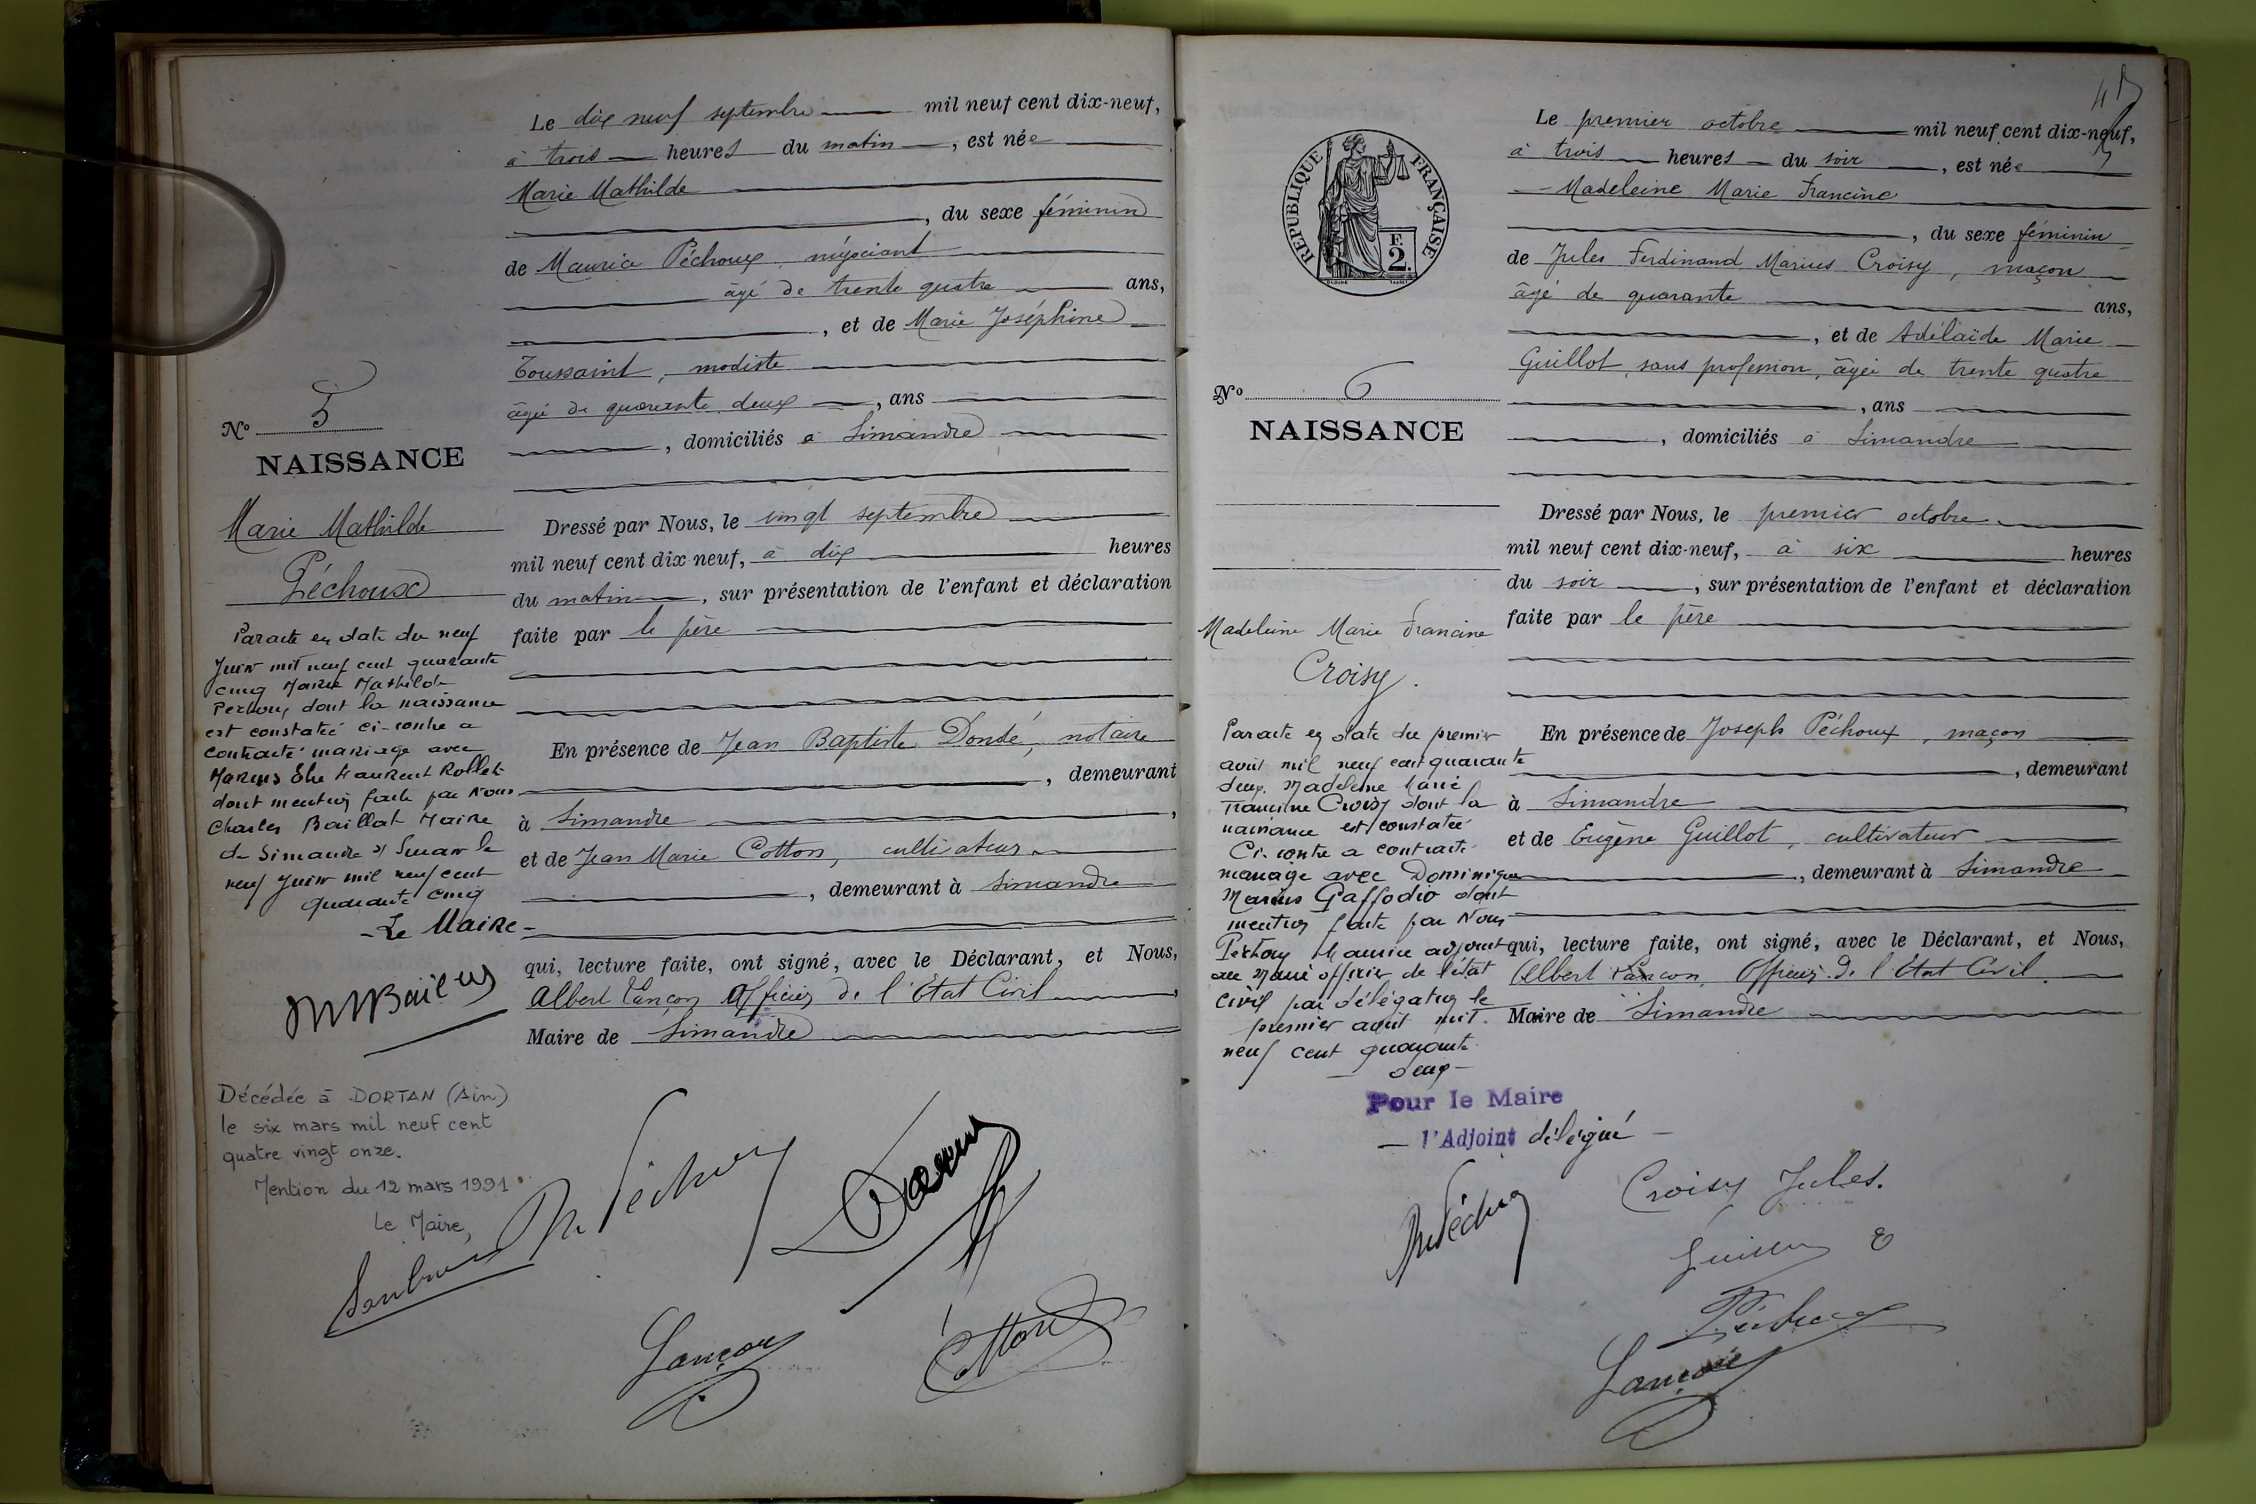 Le dix neuf septembre mil neuf cent dix-neuf,
à trois heures du matin, est née
Marie Mathilde
, du sexe féminin
de Maurice Péchoux, négociant
âgé de trente quatre ans,
, et de Marie Joséphine
Toussaint, modiste
âgée de quarante deux, ans
, domiciliés à Simandre
Nº 5
NAISSANCE
Marie Mathilde
Péchoux
Dressé par Nous, le vingt septembre
mil neuf cent dix neuf, à dix heures
du matin, sur présentation de l'enfant et déclaration
faite par le père
En présence de Jean Baptiste Dondé, notaire
, demeurant
à Simandre,
et de Jean Marie Cotton, cultivateur
, demeurant à Simandre
qui, lecture faite, ont signé, avec le Déclarant, et Nous,
Albert Lançon Officier de l'Etat Civil,
Maire de Simandre
Par acte en date du neuf
Juin mil neuf cent quarante
cinq Marie Mathilde
Pechoux dont la naissance
est constatée ci-contre a
contracté mariage avec
Marius Elie Laurent Rollet
dont mention faite par Nous
Charles Baillat Maire
de Simandre s/ Suran le
neuf Juin mil neuf cent
quarante cinq
- Le Maire -
Décédée à DORTAN (Ain)
le six mars mil neuf cent
quatre vingt onze.
Mention du 12 mars 1991
Le Maire,
M Péchoux
Lançon
Cotton
Le premier octobre mil neuf cent dix-neuf,
à trois heures du soir, est née
Madeleine Marie Francine
, du sexe féminin
de Jules Ferdinand Marius Croisy, maçon
âgé de quarante ans,
, et de Adélaïde Marie
Guillot, sans profession, âgée de trente quatre
, ans
, domiciliés à Simandre
REPUBLIQUE FRANÇAISE
F.
2.
Nº 6
NAISSANCE
Madeleine Marie Francine
Croisy.
Dressé par Nous, le premier octobre
mil neuf cent dix-neuf, à six heures
du soir, sur présentation de l'enfant et déclaration
faite par le père
En présence de Joseph Péchoux, maçon
, demeurant
à Simandre,
et de Eugène Guillot, cultivateur
, demeurant à Simandre
qui, lecture faite, ont signé, avec le Déclarant, et Nous,
Albert Lançon, Officier de l'Etat Civil
Maire de Simandre
Par acte en date du premier
août mil neuf cent quarante
deux Madeleine Marie
Francine Croisy dont la
naissance est constatée
Ci-contre a contracté
mariage avec Dominique
Marius Gaffodio dont
mention faite par Nous
Pechoux Maurice adjoint
au Maire officier de l'état
civil par délégation le
premier août mil
neuf cent quarante
- deux -
Pour le Maire
- l'Adjoint délégué -
M Péchoux
Croisy Jules.
Guillot E
Péchoux
Lançon